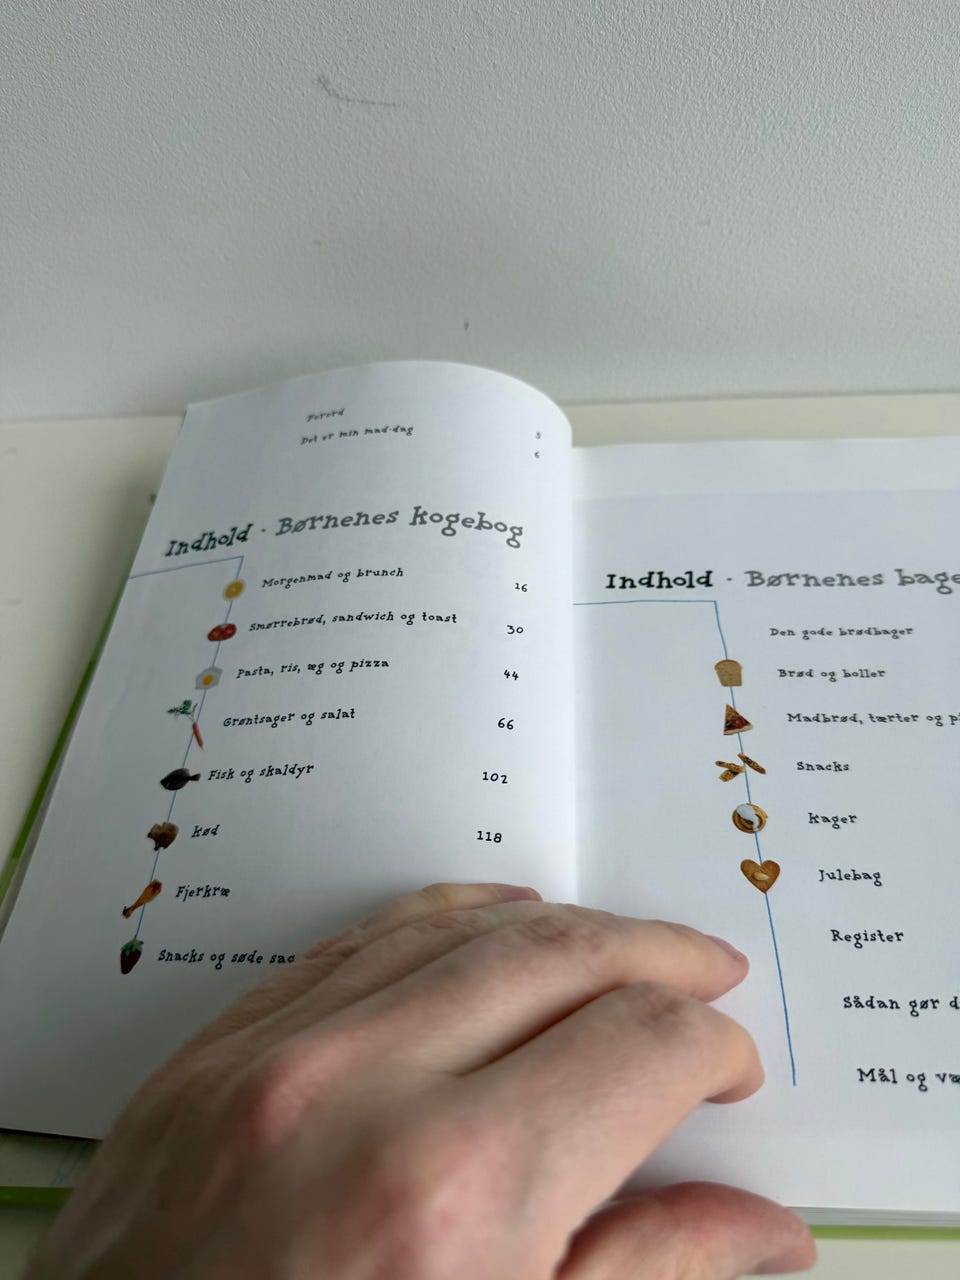 Forord
Det er min mad-dag
5
6
Indhold · Børnenes kogebog
Morgenmad og brunch 16
Smørrebrød, sandwich og toast 30
Pasta, ris, æg og pizza 44
Grøntsager og salat 66
Fisk og skaldyr 102
Kød 118
Fjerkræ
Snacks og søde sag
Indhold · Børnenes bage
Den gode brødbager
Brød og boller
Madbrød, tærter og pi
Snacks
Kager
Julebag
Register
Sådan gør d
Mål og væ